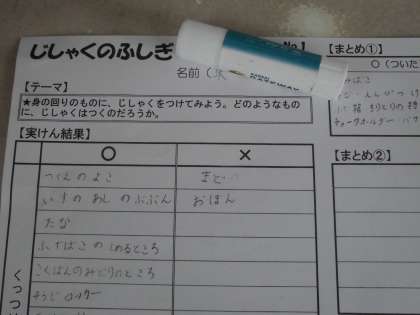 じしゃくのふしぎ
No.1
名前(
【テーマ】
★身の回りのものに、じしゃくをつけてみよう。どのようなもの
に、じしゃくはつくのだろうか。
【実けん結果】
○
×
つくえのよこ
まど
いすのあしのぶぶん
おぼん
たな
ふでばこのしめるところ
こくばんのみどりのところ
そうじロッカー
くっつ
【まとめ①】
○(ついた
【まとめ②】